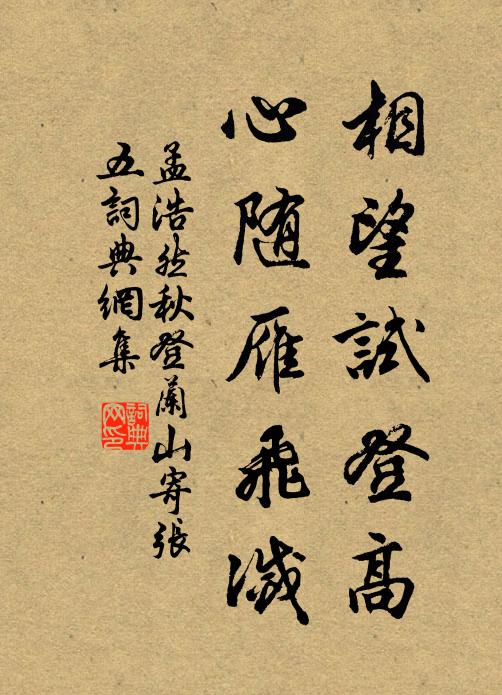 相望試登高
心随雁飛滅
孟浩然秋登蘭山寄張
五詞典網集
詞典网印